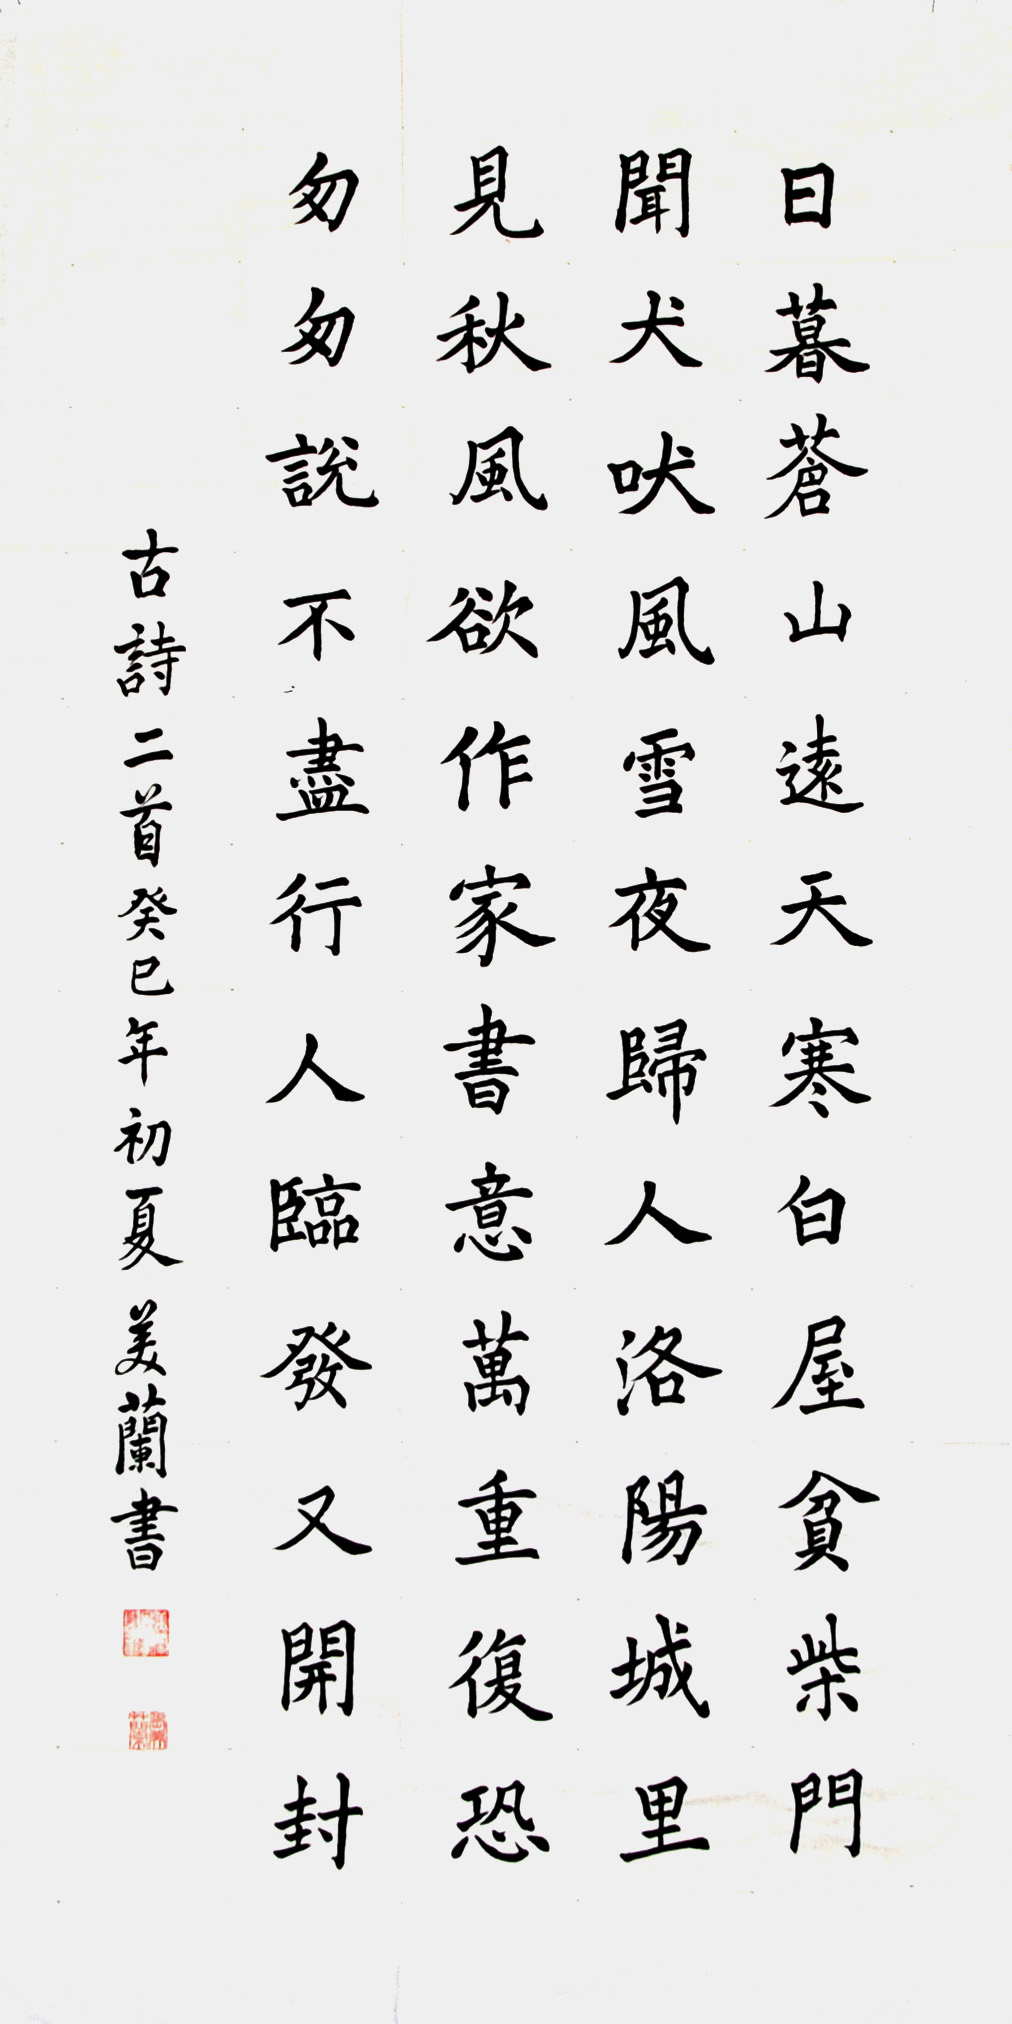 日暮蒼山遠天寒白屋貧柴門
聞犬吠風雪夜歸人洛陽城里
見秋風欲作家書意萬重復恐
匆匆說不盡行人臨發又開封
古詩二首癸巳年初夏美蘭書